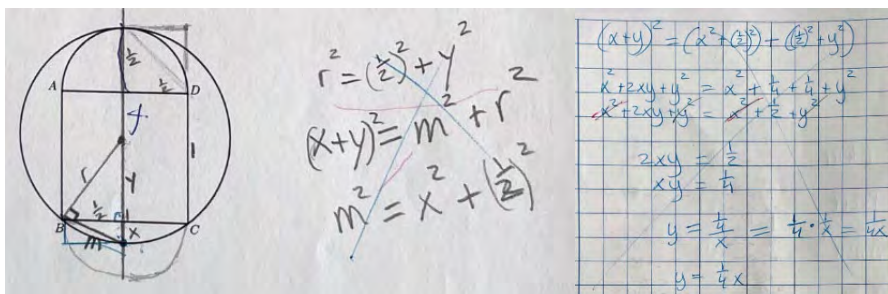 ½
½
A
D
y
1
r
y
½
B
C
m
x
r² = (½)² + y²
(x+y)² = m² + r²
m² = x² + (½)²
(x+y)² = (x² + (½)²) + ((½)² + y²)
x² + 2xy + y² = x² + ¼ + ¼ + y²
x² + 2xy + y² = x² + ½ + y²
2xy = ½
xy = ¼
y = ¼/x = ¼ · 1/x = 1/4x
y = ¼x